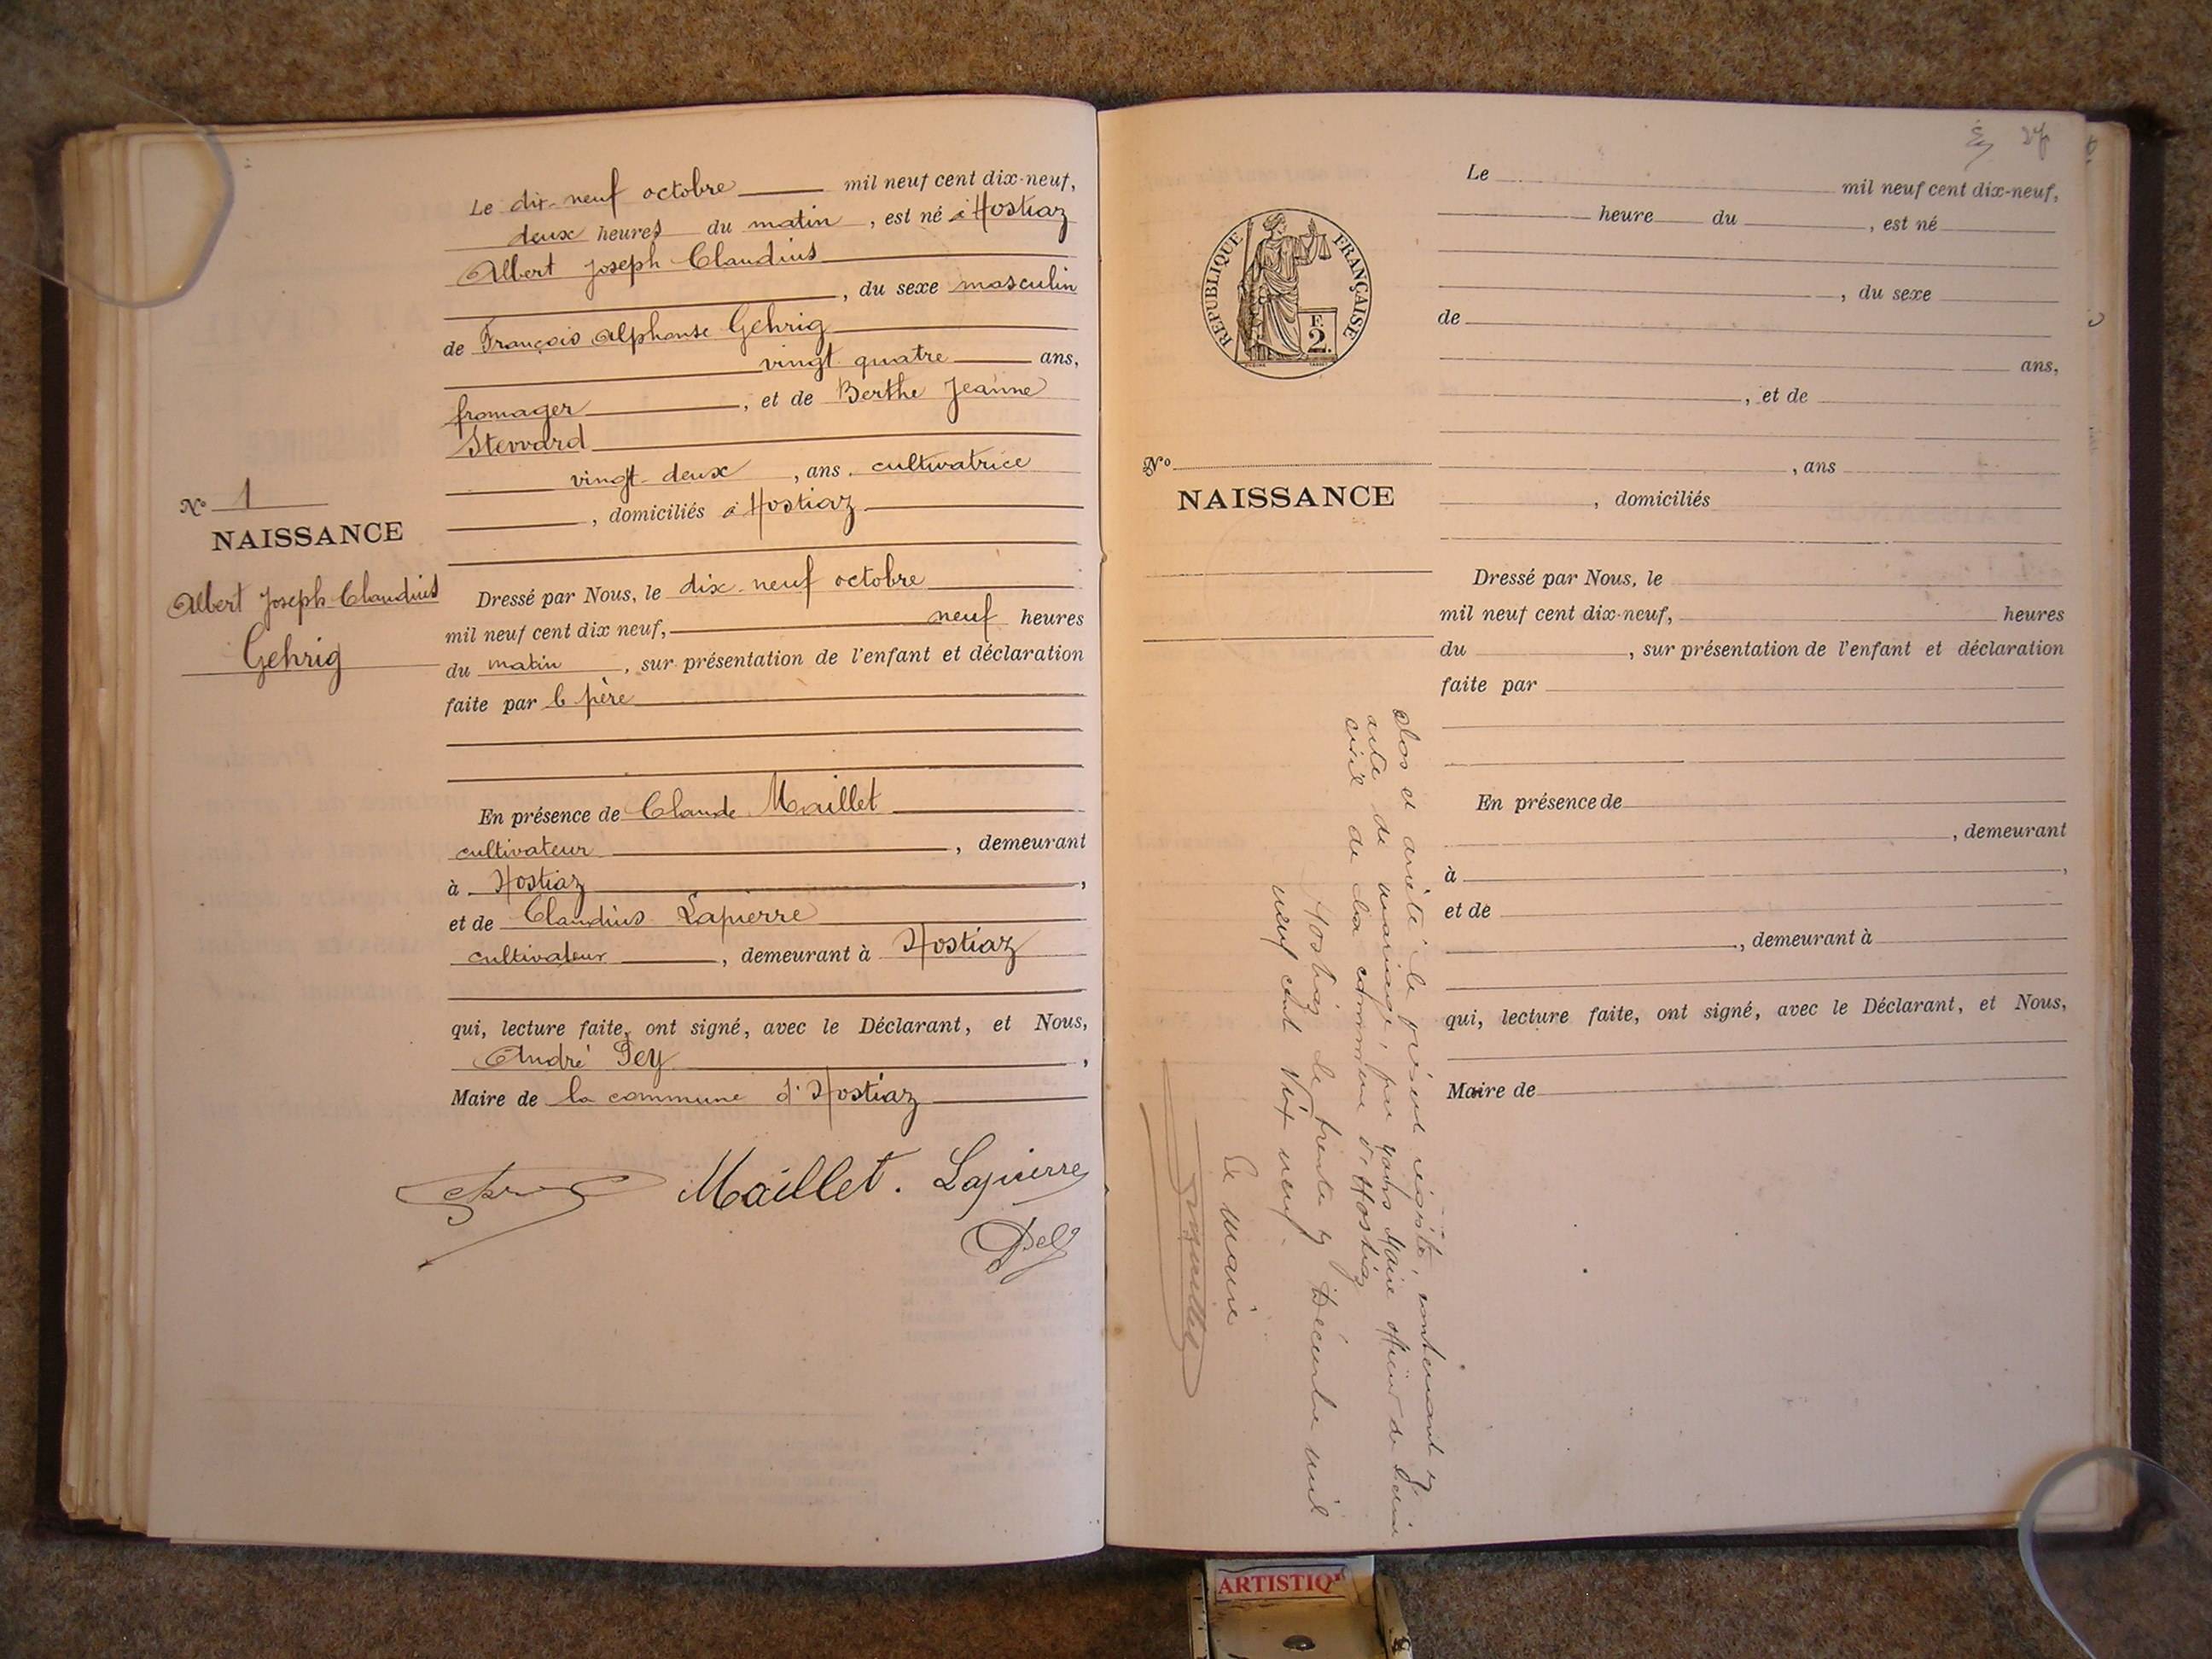 Le dix-neuf octobre mil neuf cent dix-neuf,
deux heures du matin, est né à Hostiaz
Albert Joseph Claudius
, du sexe masculin
de François Alphonse Gehrig
vingt quatre ans,
fromager, et de Berthe Jeanne
Stervard
vingt-deux, ans. cultivatrice
, domiciliés à Hostiaz
N° 1
NAISSANCE
Albert Joseph Claudius
Gehrig
Dressé par Nous, le dix-neuf octobre
mil neuf cent dix neuf, neuf heures
du matin, sur présentation de l'enfant et déclaration
faite par le père
En présence de Claude Maillet
cultivateur, demeurant
à Hostiaz,
et de Claudius Lapierre
cultivateur, demeurant à Hostiaz
qui, lecture faite, ont signé, avec le Déclarant, et Nous,
André Pey,
Maire de la commune d'Hostiaz
Maillet. Lapierre
Pey
27
REPUBLIQUE FRANÇAISE
F.
2.
Le mil neuf cent dix-neuf,
heure du , est né
, du sexe
de
ans,
, et de
N° , ans
NAISSANCE
, domiciliés
Dressé par Nous, le
mil neuf cent dix-neuf, heures
du , sur présentation de l'enfant et déclaration
faite par
En présence de
, demeurant
à ,
et de
, demeurant à
qui, lecture faite, ont signé, avec le Déclarant, et Nous,
Maire de
Clos et arrêté le présent registre, contenant
acte de mariage, par nous Maire officier de l'état
civil de la commune d'Hostiaz
Hostiaz le trente Décembre mil
neuf cent vingt neuf.
Le Maire
ARTISTIQ